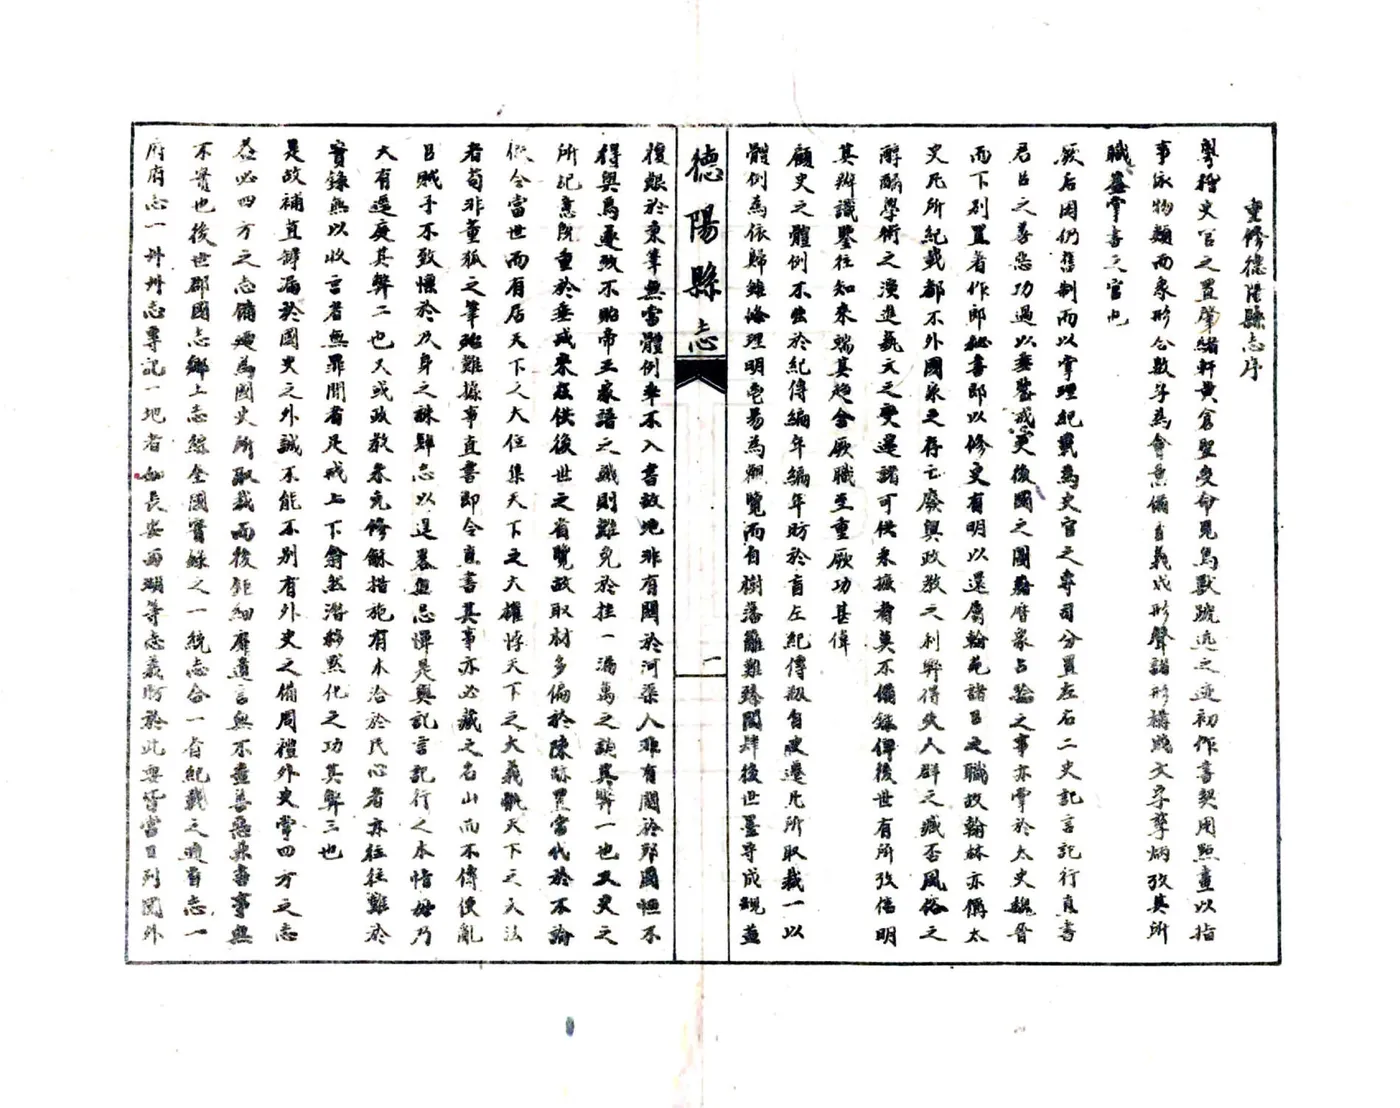 重修德陽縣志序
粵稽史官之置肇緒軒黃倉聖受命見鳥獸蹏迒之迹初作書契用點畫以指
事依物類而象形公數字為會意備自義成形聲諧形構成文字孳炳攷其所
職蓋掌書之官也
厥后因仍舊制而以掌理紀載為史官之專司分置左右二史記言記行直書
君臣之善惡功過以垂鑒戒更後國之圖籍曆象占驗之事亦掌於太史魏晉
而下別置著作郎祕書郎以修史有明以還屬翰苑諸臣之職故翰林亦偁太
史凡所紀載都不外國家之存亡廢興政教之利弊得失人群之臧否風俗之
醇醨學術之演進藝文之變遷諸可供采摭者莫不備錄俾後世有所攷信明
其辨識鑒往知來端其趨舍厥職至重厥功甚偉
顧史之體例不出於紀傳編年編年昉於盲左紀傳刱自史遷凡所取裁一以
體例為依歸雖條理明皙易為覌覽而自樹藩籬難臻閎肆後世墨守成規益
德陽縣志
一
復艱於秉筆無當體例率不入書故地非有關於河渠人非有關於邦國恒不
得與焉遂致不貽帝王家譜之譏則難免於挂一漏萬之誚其弊一也又史之
所記意既重於垂戒來茲供後世之省覽故取材多偏於陳跡置當代於不論
從令當世而有居天下之大位集天下之大權悖天下之大義亂天下之大法
者苟非董狐之筆殆難據事直書即令直書其事亦必藏之名山而不傳使亂
臣賊子不致懼於及身之誅肆志以逞畧無忌憚是與記言記行之本恉毋乃
大有逕庭其弊二也又或政教眷元修龢措施有本洽於民心者亦往往難於
實錄無以收言者無罪聞者足戒上下翕然潛移默化之功其弊三也
是故補苴罅漏於國史之外誠不能不別有外史之備周禮外史掌四方之志
蓋必四方之志備迺為國史所取裁而後鉅細靡遺言無不盡善惡具書事無
不實也後世郡國志鄉土志綜全國實錄之一統志合一省紀載之通省志一
府府志一州州志專記一地者如長安西湖等志義昉於此要皆當日列國外